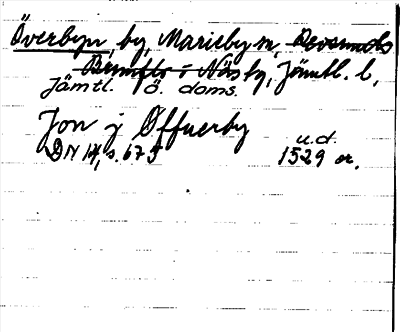 Överbyn by, Marieby sn, Revsunds
Brunflo o Näs tg, Jämtl. l.
Jämtl. ö. doms.
Jon j Øffuerby
u.d.
DN 14, s. 675 1529 or.